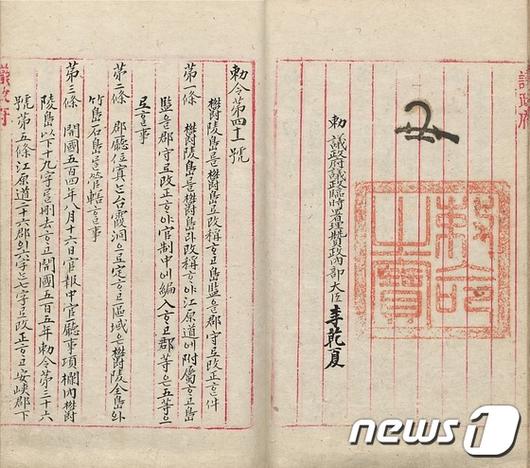 議政府
制命之寶
勅 議政府議政臨時署理贊政內部大臣 李乾夏
勅令第四十一號
鬱陵島를鬱島로改稱ᄒᆞ고島監을郡守로改正ᄒᆞᆫ件
第一條 鬱陵島를鬱島라改稱ᄒᆞ야江原道에附屬ᄒᆞ고島
監을郡守로改正ᄒᆞ야官制中에編入ᄒᆞ고郡等은五等으
로ᄒᆞᆯ事
第二條 郡廳位寘는台霞洞으로定ᄒᆞ고區域은鬱陵全島와
竹島石島를管轄ᄒᆞᆯ事
第三條 開國五百四年八月十六日官報中官廳事項欄內鬱
陵島以下十九字를刪去ᄒᆞ고開國五百五年勅令第三十六
號第五條江原道二十六郡의六字는七字로改正ᄒᆞ고安峽郡下
議政府
news1
뉴스1